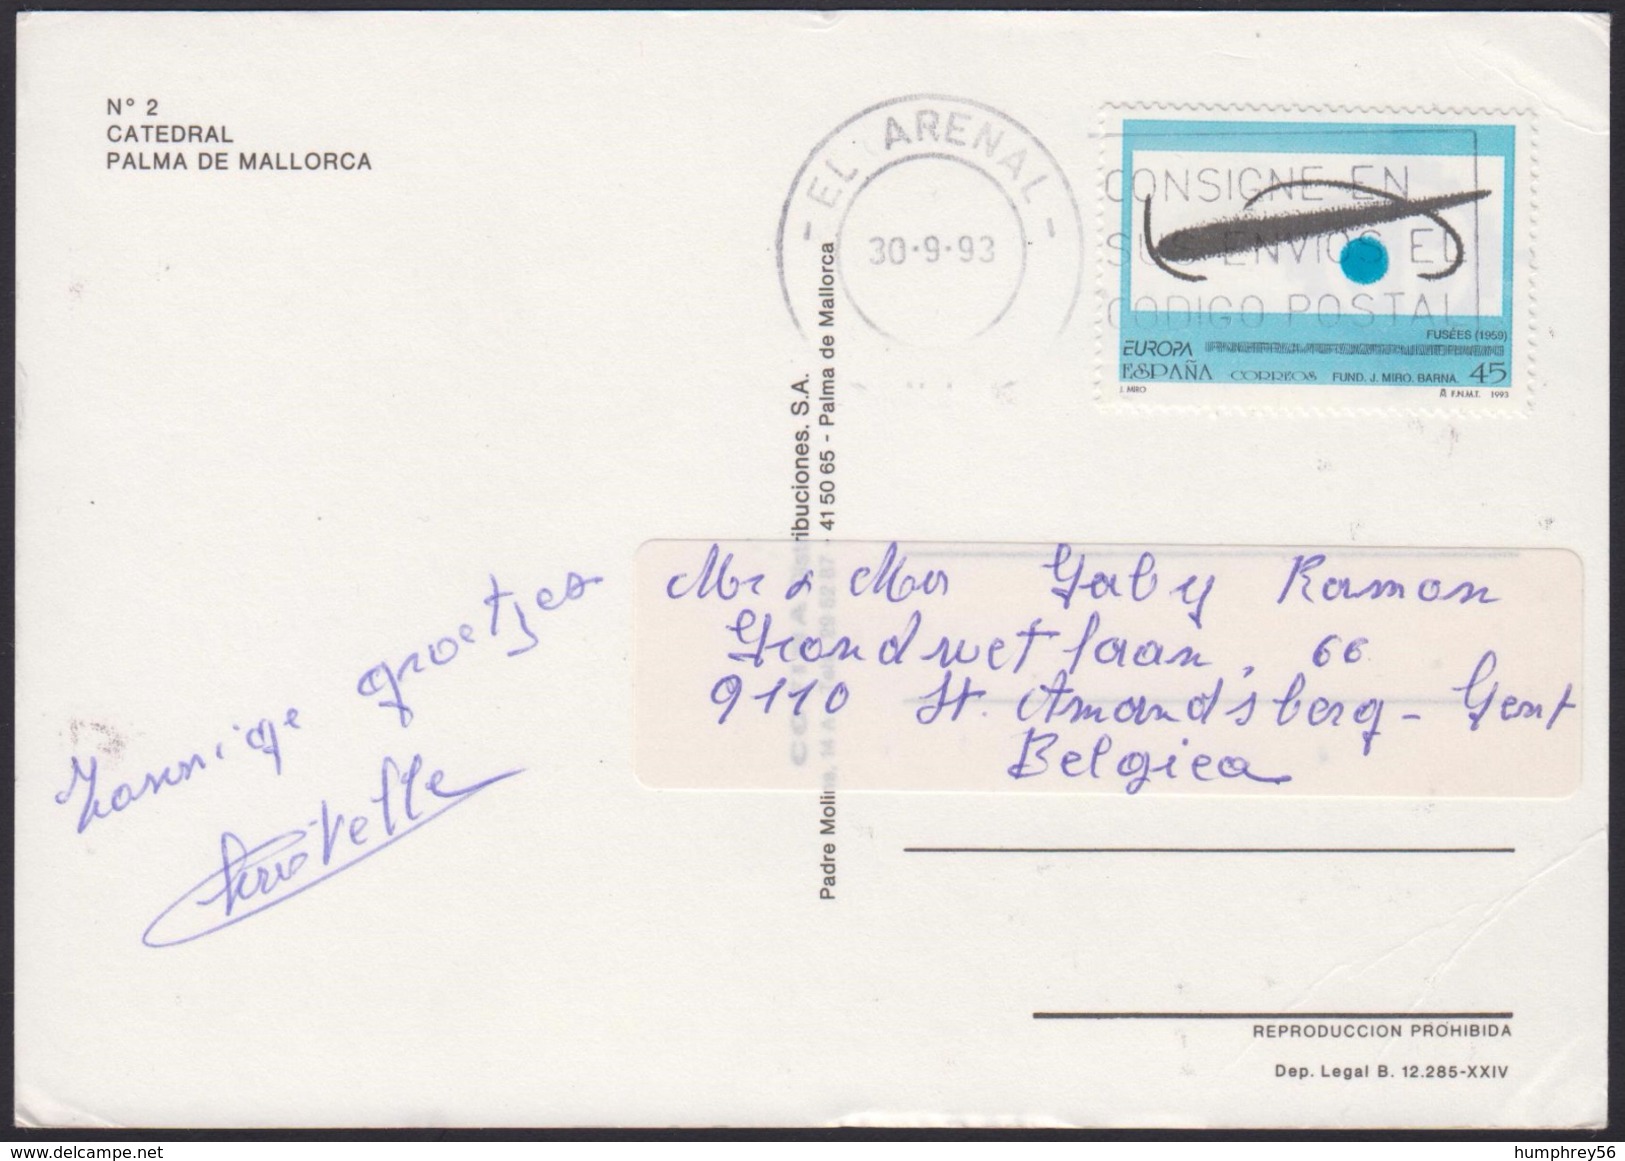 N° 2
CATEDRAL
PALMA DE MALLORCA
- EL ARENAL -
30-9-93
CONSIGNE EN
SUS ENVIOS EL
CODIGO POSTAL
FUSÉES (1959)
EUROPA
ESPAÑA CORREOS FUND. J. MIRO. BARNA. 45
J. MIRO F.N.M.T. 1993
ribuciones. S.A.
Padre Molina, 14 A 41 50 65 - Palma de Mallorca
Zonnige groetjes
Mr & Mevr Gaby Ramon
Grondwetlaan, 66
9110 St. Amandsberg - Gent
Belgica
REPRODUCCION PROHIBIDA
Dep. Legal B. 12.285-XXIV
humphrey56